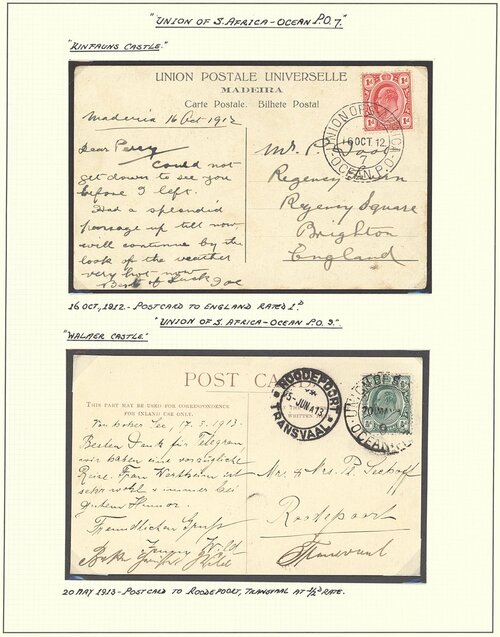 "UNION OF S. AFRICA - OCEAN P.O. 7."
"KINFAUNS CASTLE."
UNION POSTALE UNIVERSELLE
MADEIRA
Carte Postale. Bilhete Postal
Maderia 16 Oct 1912
Dear Percy
Could not
get down to see you
before I left.
Had a splendid
passage up till now
will continue by the
look of the weather
very hot now
Best of luck Joe
UNION OF S. AFRICA
16 OCT 12
7
OCEAN P.O.
Mr. P.
Regency
Regency Square
Brighton
England
16 OCT, 1912. - POSTCARD TO ENGLAND RATED 1d
"UNION OF S. AFRICA - OCEAN P.O. 9."
"WALMER CASTLE."
POST
THIS PART MAY BE USED FOR CORRESPONDENCE
FOR INLAND USE ONLY.
WRITTEN
ROODEPOORT
5 - JUN 13
TRANSVAAL
UNION OF S.
20 MAY
9
OCEAN P.O.
hoher See, 17.5.1913.
Besten Dank für Telegram
wir haben eine vorzügliche
Reise. Frau Wertheim ist
sehr wohl & immer bei
gutem Humor.
Freundlichen Gruss
Mr. & Mrs. P.
Roodepoort
Transvaal
20 MAY 1913 - POSTCARD TO ROODEPOORT, TRANSVAAL AT ½d RATE.